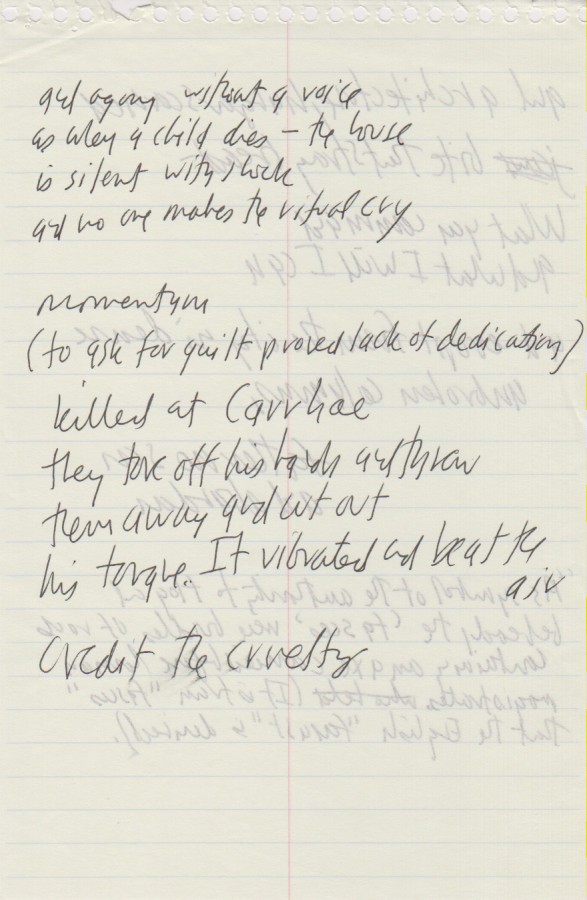 and agony without a voice
as when a child dies – the house
is silent with shock
and no one makes the ritual cry
momentum
(to ask for guilt proved lack of dedication)
killed at Carrhae
they tore off his hands and threw
them away and cut out
his tongue.. It vibrated and beat the
air
Credit the cruelty